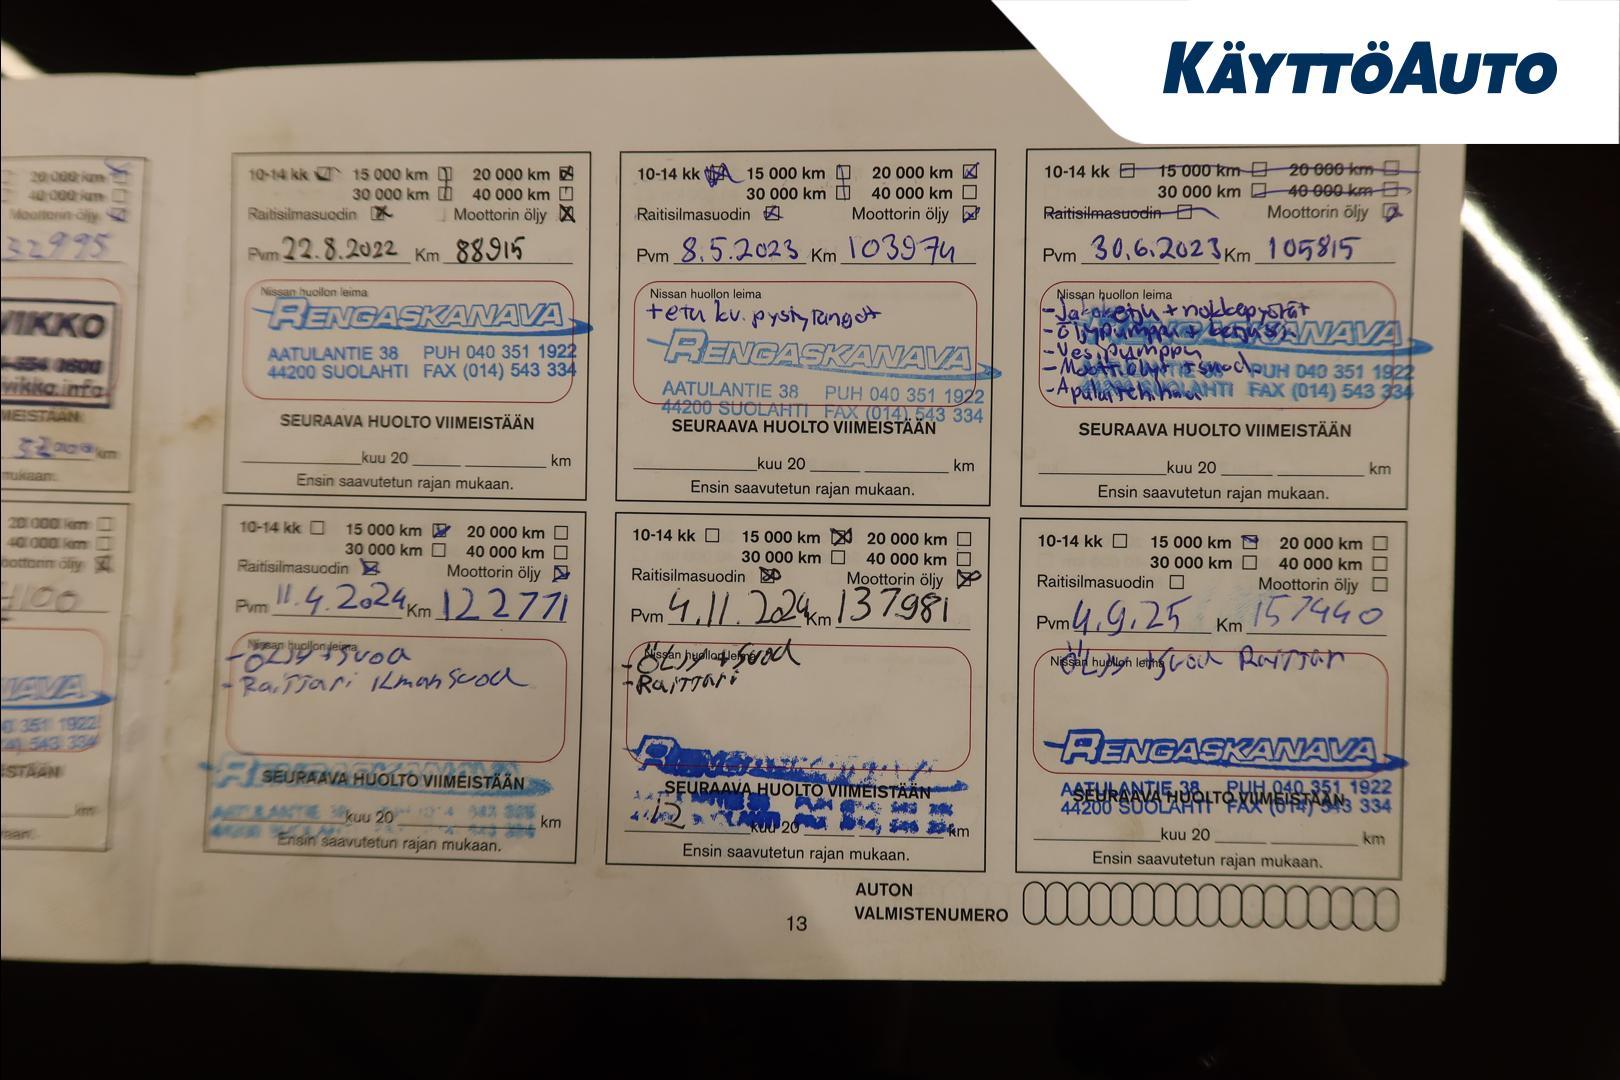 KÄYTTÖAUTO
20 000 km
40 000 km
Moottorin öljy
32995
VIKKO
554 0600
vikko.info
km
mukaan.
20 000 km
40 000 km
Moottorin öljy
0 351 1922
543 334
km
10-14 kk 15 000 km 20 000 km
30 000 km 40 000 km
Raitisilmasuodin Moottorin öljy
Pvm 22.8.2022 Km 88915
Nissan huollon leima
RENGASKANAVA
AATULANTIE 38 PUH 040 351 1922
44200 SUOLAHTI FAX (014) 543 334
SEURAAVA HUOLTO VIIMEISTÄÄN
kuu 20 km
Ensin saavutetun rajan mukaan.
10-14 kk 15 000 km 20 000 km
30 000 km 40 000 km
Raitisilmasuodin Moottorin öljy
Pvm 8.5.2023 Km 103974
Nissan huollon leima
+ etu kv. pystytangot
RENGASKANAVA
AATULANTIE 38 PUH 040 351 1922
44200 SUOLAHTI FAX (014) 543 334
SEURAAVA HUOLTO VIIMEISTÄÄN
kuu 20 km
Ensin saavutetun rajan mukaan.
10-14 kk 15 000 km 20 000 km
30 000 km 40 000 km
Raitisilmasuodin Moottorin öljy
Pvm 30.6.2023 Km 105815
Nissan huollon leima
-Jakoketju + nokkapyörät
-Öljypumppu + ketju
-Vesipumppu
-Moott.öljyt + suod.
-Apulaitehihna
PUH 040 351 1922
SUOLAHTI FAX (014) 543 334
SEURAAVA HUOLTO VIIMEISTÄÄN
kuu 20 km
Ensin saavutetun rajan mukaan.
10-14 kk 15 000 km 20 000 km
30 000 km 40 000 km
Raitisilmasuodin Moottorin öljy
Pvm 11.4.2024 Km 122771
Nissan huollon leima
-ÖLJY + SUOD
-RAITTARI ILMANSUOD
RENGASKANAVA
SEURAAVA HUOLTO VIIMEISTÄÄN
kuu 20 km
Ensin saavutetun rajan mukaan.
10-14 kk 15 000 km 20 000 km
30 000 km 40 000 km
Raitisilmasuodin Moottorin öljy
Pvm 4.11.2024 Km 137981
Nissan huollon leima
-ÖLJY + SUOD
-RAITTARI
SEURAAVA HUOLTO VIIMEISTÄÄN
12 kuu 20 km
Ensin saavutetun rajan mukaan.
10-14 kk 15 000 km 20 000 km
30 000 km 40 000 km
Raitisilmasuodin Moottorin öljy
Pvm 4.9.25 Km 157440
Nissan huollon leima
ÖLJY + SUOD RAITTARI
RENGASKANAVA
AATULANTIE 38 PUH 040 351 1922
44200 SUOLAHTI FAX (014) 543 334
SEURAAVA HUOLTO VIIMEISTÄÄN
kuu 20 km
Ensin saavutetun rajan mukaan.
AUTON
VALMISTENUMERO
13